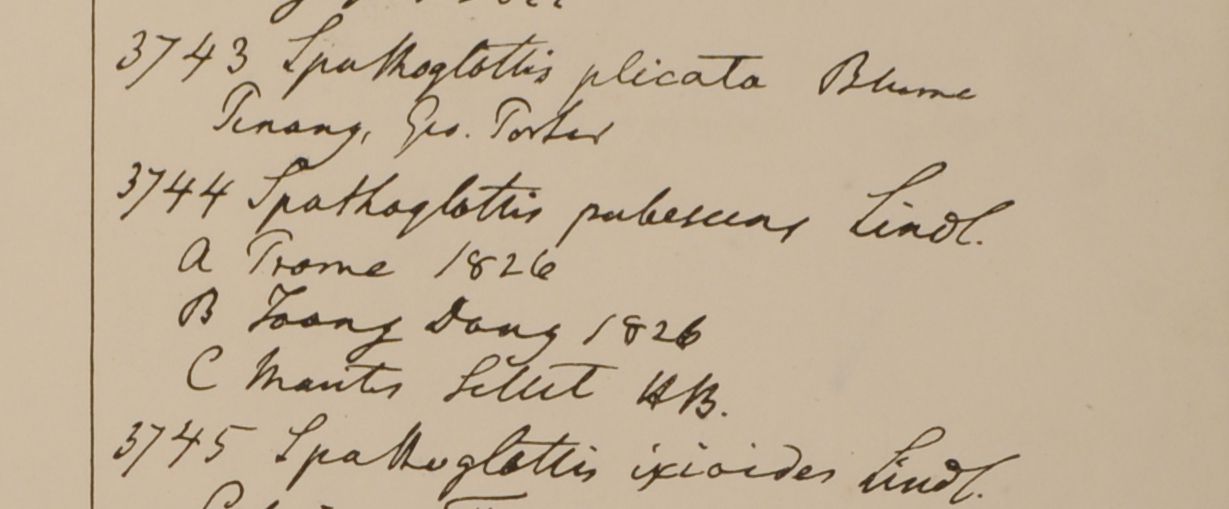 3743 Spathoglottis plicata Blume
Penang, Geo. Porter
3744 Spathoglottis pubescens Lindl.
A Prome 1826
B Toong Dong 1826
C Montes Sillet HB.
3745 Spathoglottis ixioides Lindl.